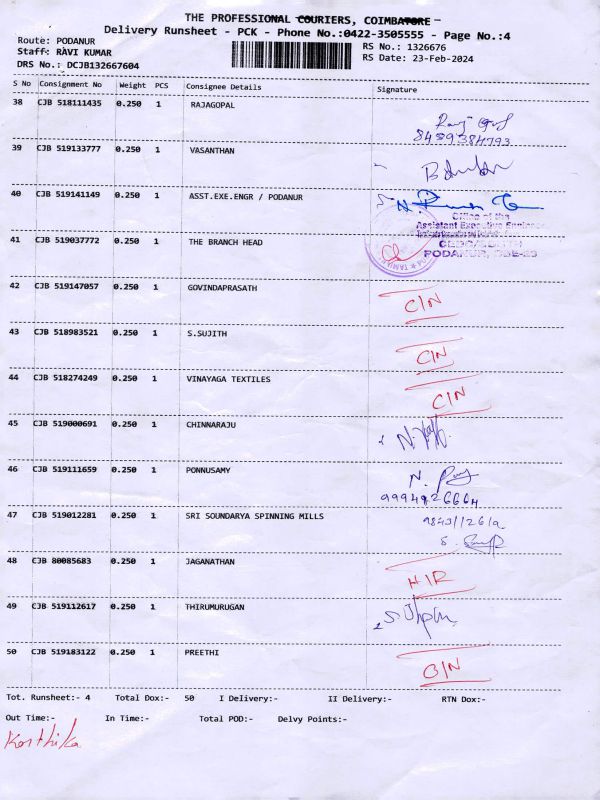 THE PROFESSIONAL COURIERS, COIMBATORE
Delivery Runsheet - PCK - Phone No.:0422-3505555 - Page No.:4
Route: PODANUR RS No.: 1326676
Staff: RAVI KUMAR RS Date: 23-Feb-2024
DRS No.: DCJB132667604
S No Consignment No Weight PCS Consignee Details Signature
38 CJB 518111435 0.250 1 RAJAGOPAL
39 CJB 519133777 0.250 1 VASANTHAN
40 CJB 519141149 0.250 1 ASST.EXE.ENGR / PODANUR
Office of the
Assistant Executive Engineer
41 CJB 519037772 0.250 1 THE BRANCH HEAD
PODANUR,
42 CJB 519147057 0.250 1 GOVINDAPRASATH C/N
43 CJB 518983521 0.250 1 S.SUJITH C/N
44 CJB 518274249 0.250 1 VINAYAGA TEXTILES C/N
45 CJB 519000691 0.250 1 CHINNARAJU
46 CJB 519111659 0.250 1 PONNUSAMY
47 CJB 519012281 0.250 1 SRI SOUNDARYA SPINNING MILLS
48 CJB 80085683 0.250 1 JAGANATHAN
49 CJB 519112617 0.250 1 THIRUMURUGAN
50 CJB 519183122 0.250 1 PREETHI
Tot. Runsheet:- 4 Total Dox:- 50 I Delivery:- II Delivery:- RTN Dox:-
Out Time:- In Time:- Total POD:- Delvy Points:-
Karthika